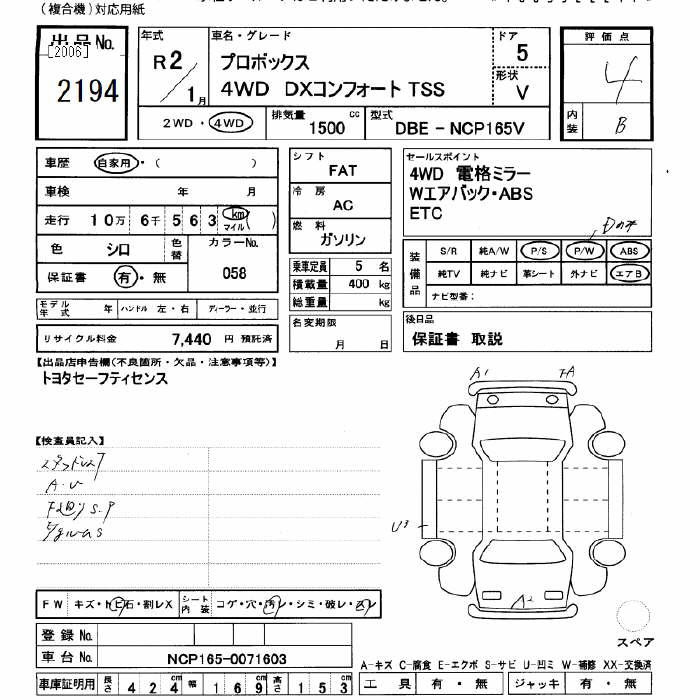 (複合機)対応用紙
出品No.
[2006]
2194
年式
R2/1月
車名・グレード
プロボックス
4WD DXコンフォート TSS
ドア
5
形状
V
評価点
4
内装
B
2WD・4WD
排気量
1500 cc
型式
DBE-NCP165V
車歴 自家用・( )
車検 年 月
走行 10万 6千 5 6 3 km マイル ( )
色 シロ 色替
カラーNo.
058
保証書 有・無
モデル年式 年 ハンドル 左・右 ディーラー・並行
リサイクル料金 7,440 円 預託済
シフト
FAT
冷房
AC
燃料
ガソリン
乗車定員 5 名
積載量 400 kg
総重量 kg
名変期限
月 日
セールスポイント
4WD 電格ミラー
Wエアバック・ABS
ETC
Dのみ
装備品
S/R 純A/W P/S P/W ABS
純TV 純ナビ 革シート 外ナビ エアB
ナビ型番:
後日品
保証書 取説
【出品店申告欄(不良箇所・欠品・注意事項等)】
トヨタセーフティセンス
【検査員記入】
A・U
A1
U3
A2
FW キズ・トビ石・割レX
シート内装 コゲ・穴・汚レ・シミ・破レ・スレ
登録No.
車台No. NCP165-0071603
車庫証明用 長さ 4 2 4 cm 幅 1 6 9 cm 高さ 1 5 3 cm
スペア
A-キズ C-腐食 E-エクボ S-サビ U-凹ミ W-補修 XX-交換済
工具 有・無 ジャッキ 有・無